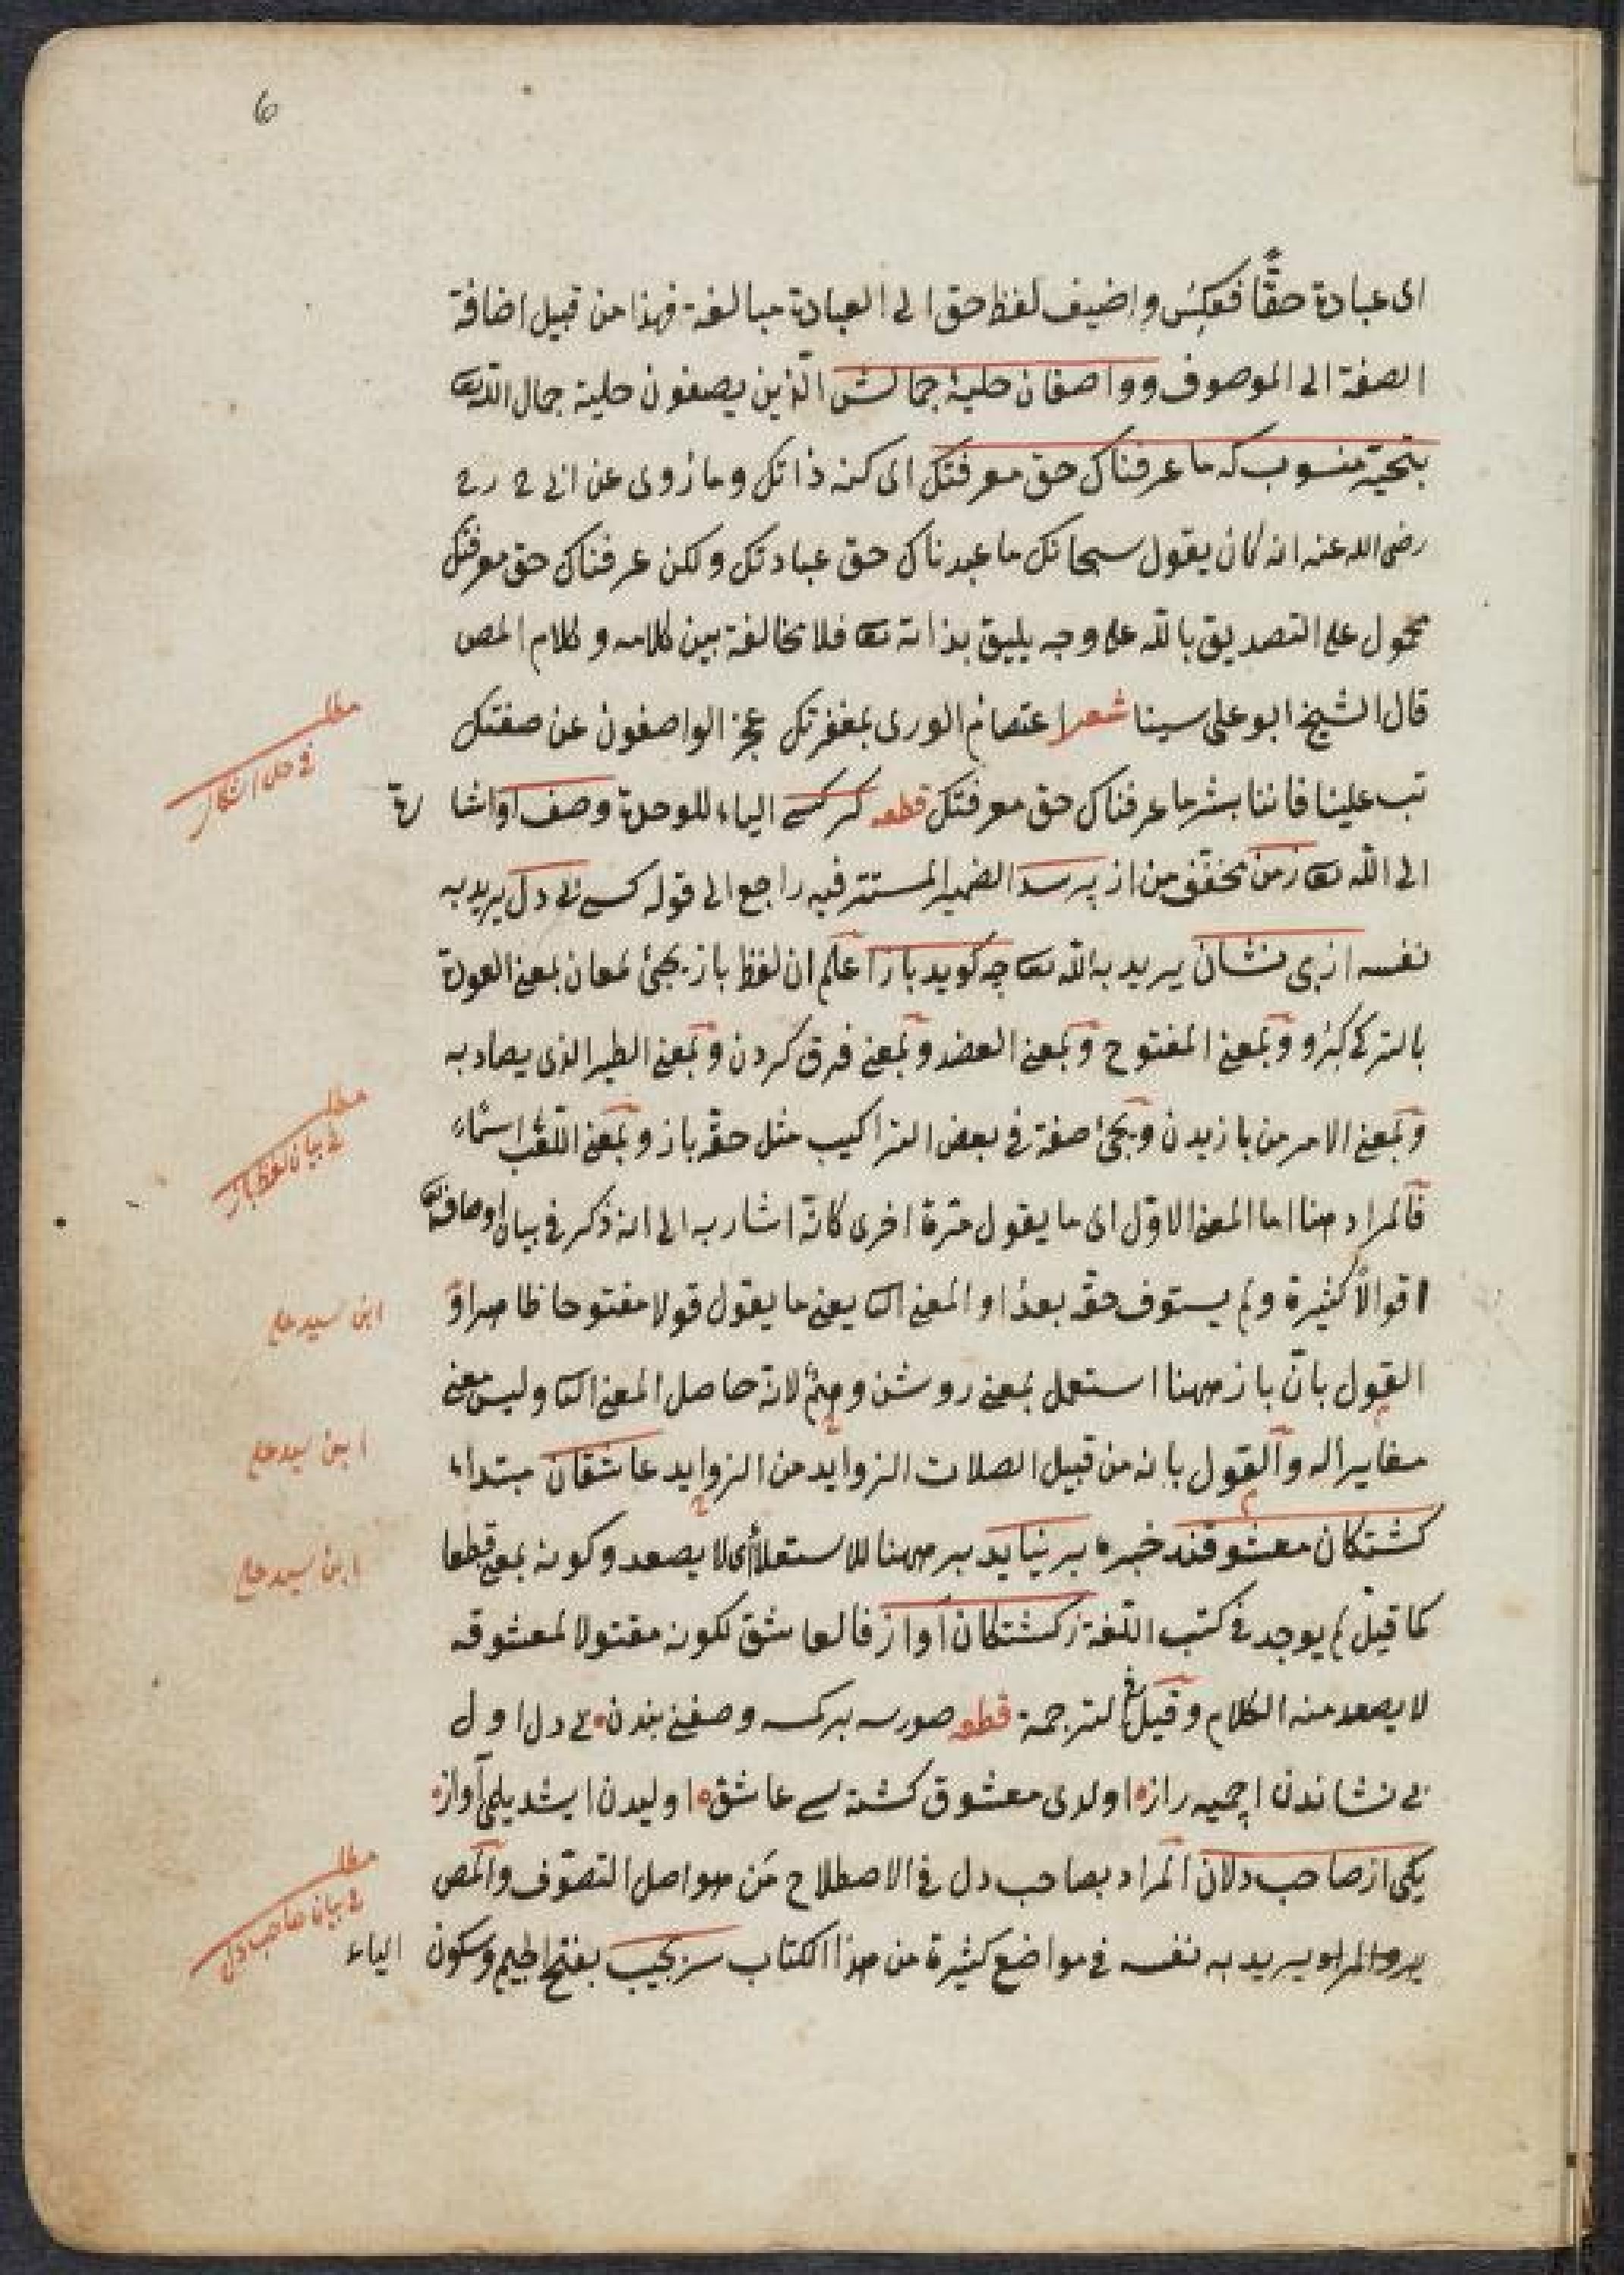 6
اى عبادة حقّا فعكس واضيف لفظ حق الى العبادة مبالغة فهذا من قبيل اضافة
الصفة الى الموصوف وواصفان حلية جمالش الّذين يصفون حلية جمال الله تعا
بتحيّر منسوب كه ما عرفناك حق معرفتك اى كنه ذاتك وما روى عن
رضى الله عنه انه كان يقول سبحانك ما عبدناك حق عبادتك ولكن عرفناك حق معرفتك
محمول على التصديق بالله على وجه يليق بذاته تعا فلا مخالفة بين كلامه وكلام المص
قال الشيخ ابو على سينا شعر اعتصام الورى بمغفرتك عجز الواصفون عن صفتك
تب علينا فاننا بشر ما عرفناك حق معرفتك قطعه كر كسى الياء للوحدة وصف او اشا رة
الى الله تعا ز من مخفّف من از پرسد الضمير المستتر فيه راجع الى قوله كسى بى دل يريد به
نفسه از بى نشان يريد به الله تعا چه كويد باز اعلم ان لفظ باز يجئ لمعان بمعنى العودة
بالتركى كيرو وبمعنى المفتوح وبمعنى العضد وبمعنى فرق كردن وبمعنى الطير الذى يصاد به
وبمعنى الامر من بازيدن ويجئ صفة فى بعض التراكيب مثل حقّه باز وبمعنى اللّعب اسمًا
فالمراد هنا اما المعنى الاوّل اى ما يقول مرّة اخرى كانّه اشار به الى انه ذكر فى بيان اوصافه تعا
اقوالًا كثيرة ولم يستوف حقّه بعد او المعنى الثا يعنى ما يقول قولا مفتوحا ظاهرا و
القول بانّ باز ههنا استعمل بمعنى روشن وهمٌ لانه حاصل المعنى الثا وليس معنى
مغايرا له والقول بانه من قبيل الصلات الزوايد من الزوايد عاشقان مبتداء
كشتكان معشوقند خبره بر نيايد بر ههنا للاستعلاء اى لا يصعد وكونه بمعنى قطعا
كما قيل لم يوجد فى كتب اللّغة ز كشتكان آواز فالعاشق لكونه مقتولا لمعشوقه
لا يصعد منه الكلام وقيل فى الترجمة قطعه صورسه بر كسه وصفنى بندن بى دل اول
بى نشاندن اچميه راز اولدى معشوق كشته سى عاشق اوليدن ايشديلمى آواز
يكى از صاحب دلان المراد بصاحب دل فى الاصطلاح من هو اهل التصوّف والمص
يريد به نفسه فى مواضع كثيرة من هذا الكتاب سر بجيب بفتح الجيم وسكون الياء
مطلب
فى حل اشكال
مطلب
فى بيان لفظ باز
ابن سيد على
ابن سيد على
ابن سيد على
مطلب
فى بيان صاحب دل